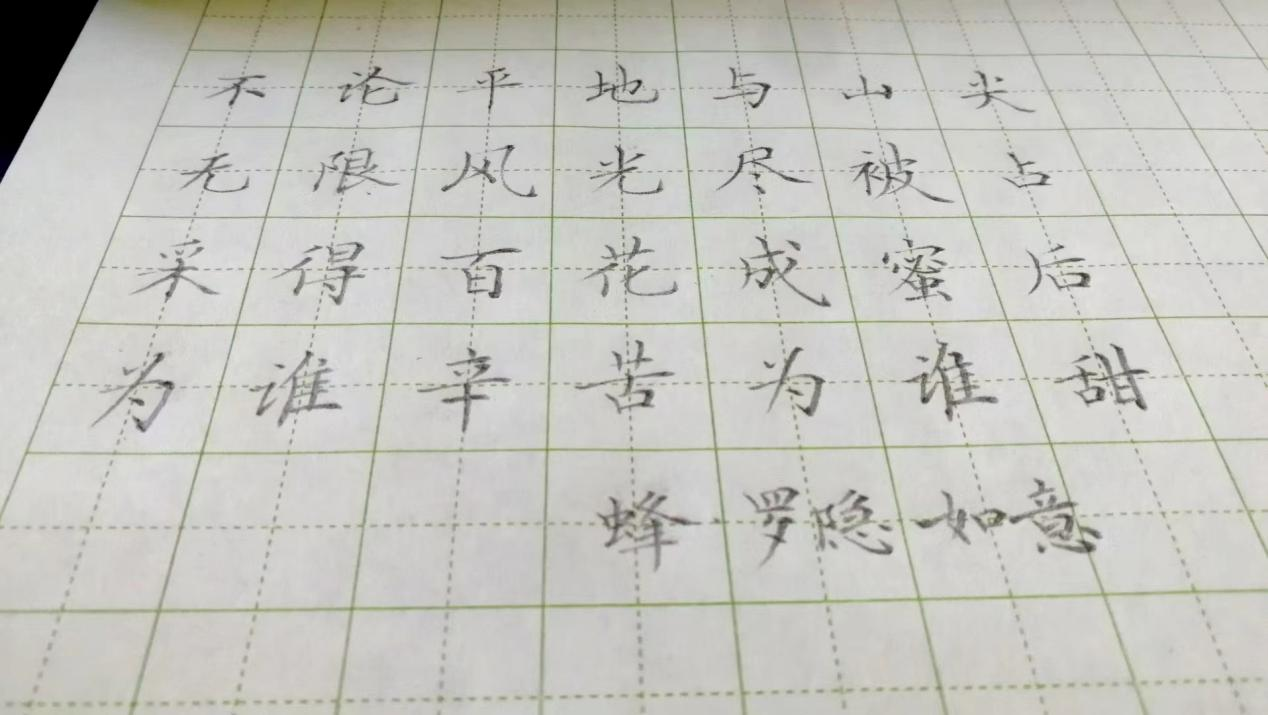 不论平地与山尖
无限风光尽被占
采得百花成蜜后
为谁辛苦为谁甜
蜂 罗隐 如意